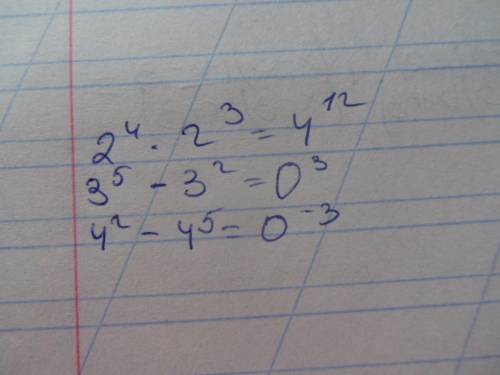 2⁴ · 2³ = 4¹²
3⁵ - 3² = 0³
4² - 4⁵ = 0⁻³